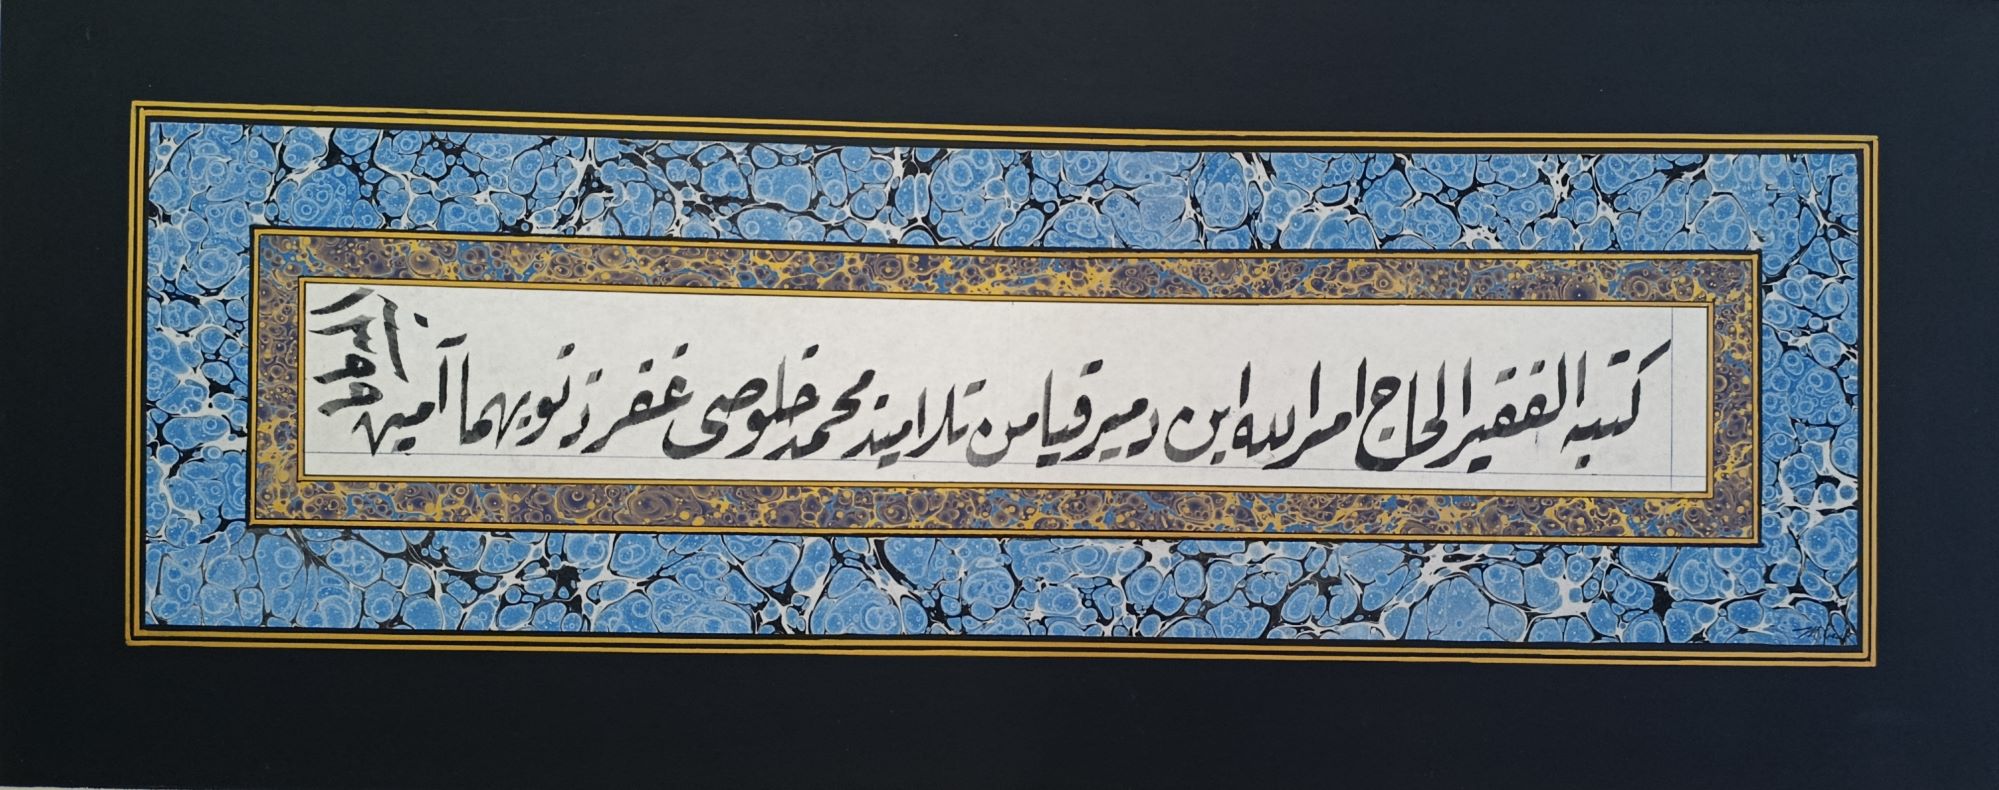 كتبه الفقير الحاج امر الله ابن دميرقيا من تلاميذ محمد خلوصى غفر ذنوبهما آمين
١٣٩٩